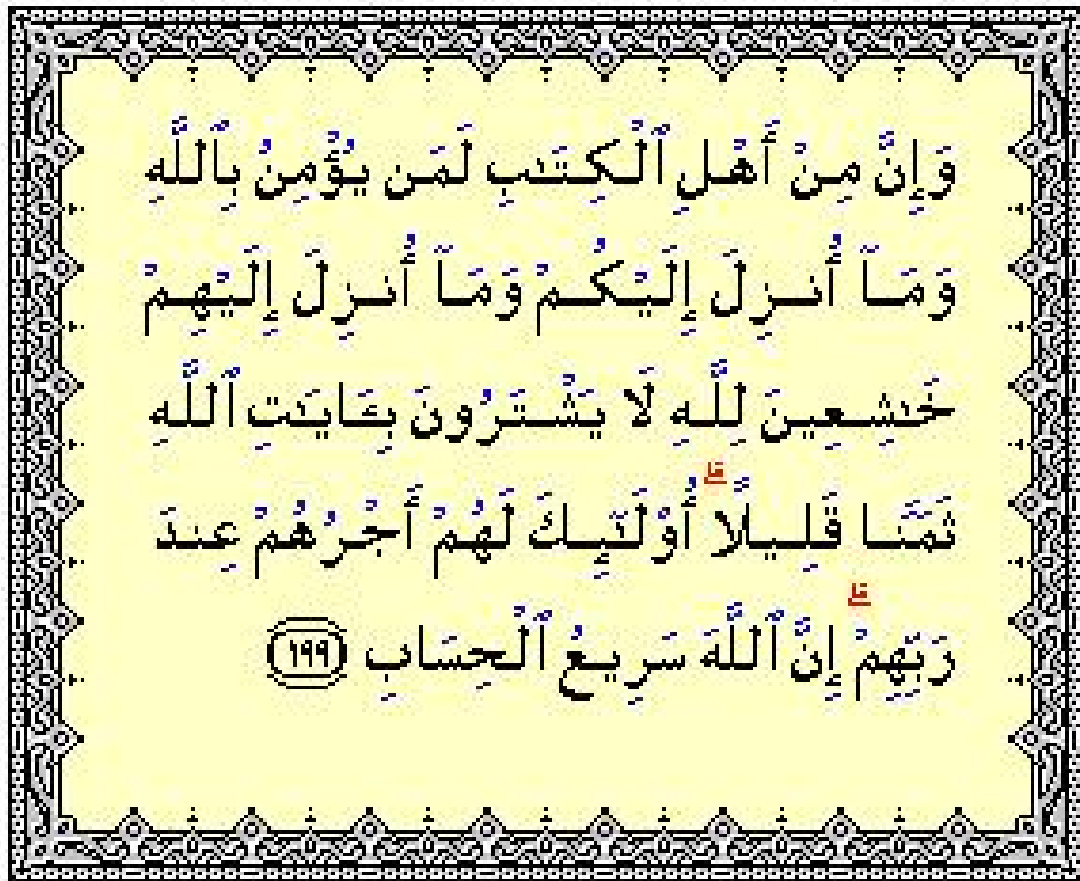 وَإِنَّ مِنْ أَهْلِ ٱلْكِتَـٰبِ لَمَن يُؤْمِنُ بِٱللَّهِ
وَمَآ أُنزِلَ إِلَيْكُمْ وَمَآ أُنزِلَ إِلَيْهِمْ
خَـٰشِعِينَ لِلَّهِ لَا يَشْتَرُونَ بِـَٔايَـٰتِ ٱللَّهِ
ثَمَنًا قَلِيلًا ۗ أُو۟لَـٰٓئِكَ لَهُمْ أَجْرُهُمْ عِندَ
رَبِّهِمْ ۗ إِنَّ ٱللَّهَ سَرِيعُ ٱلْحِسَابِ ١٩٩